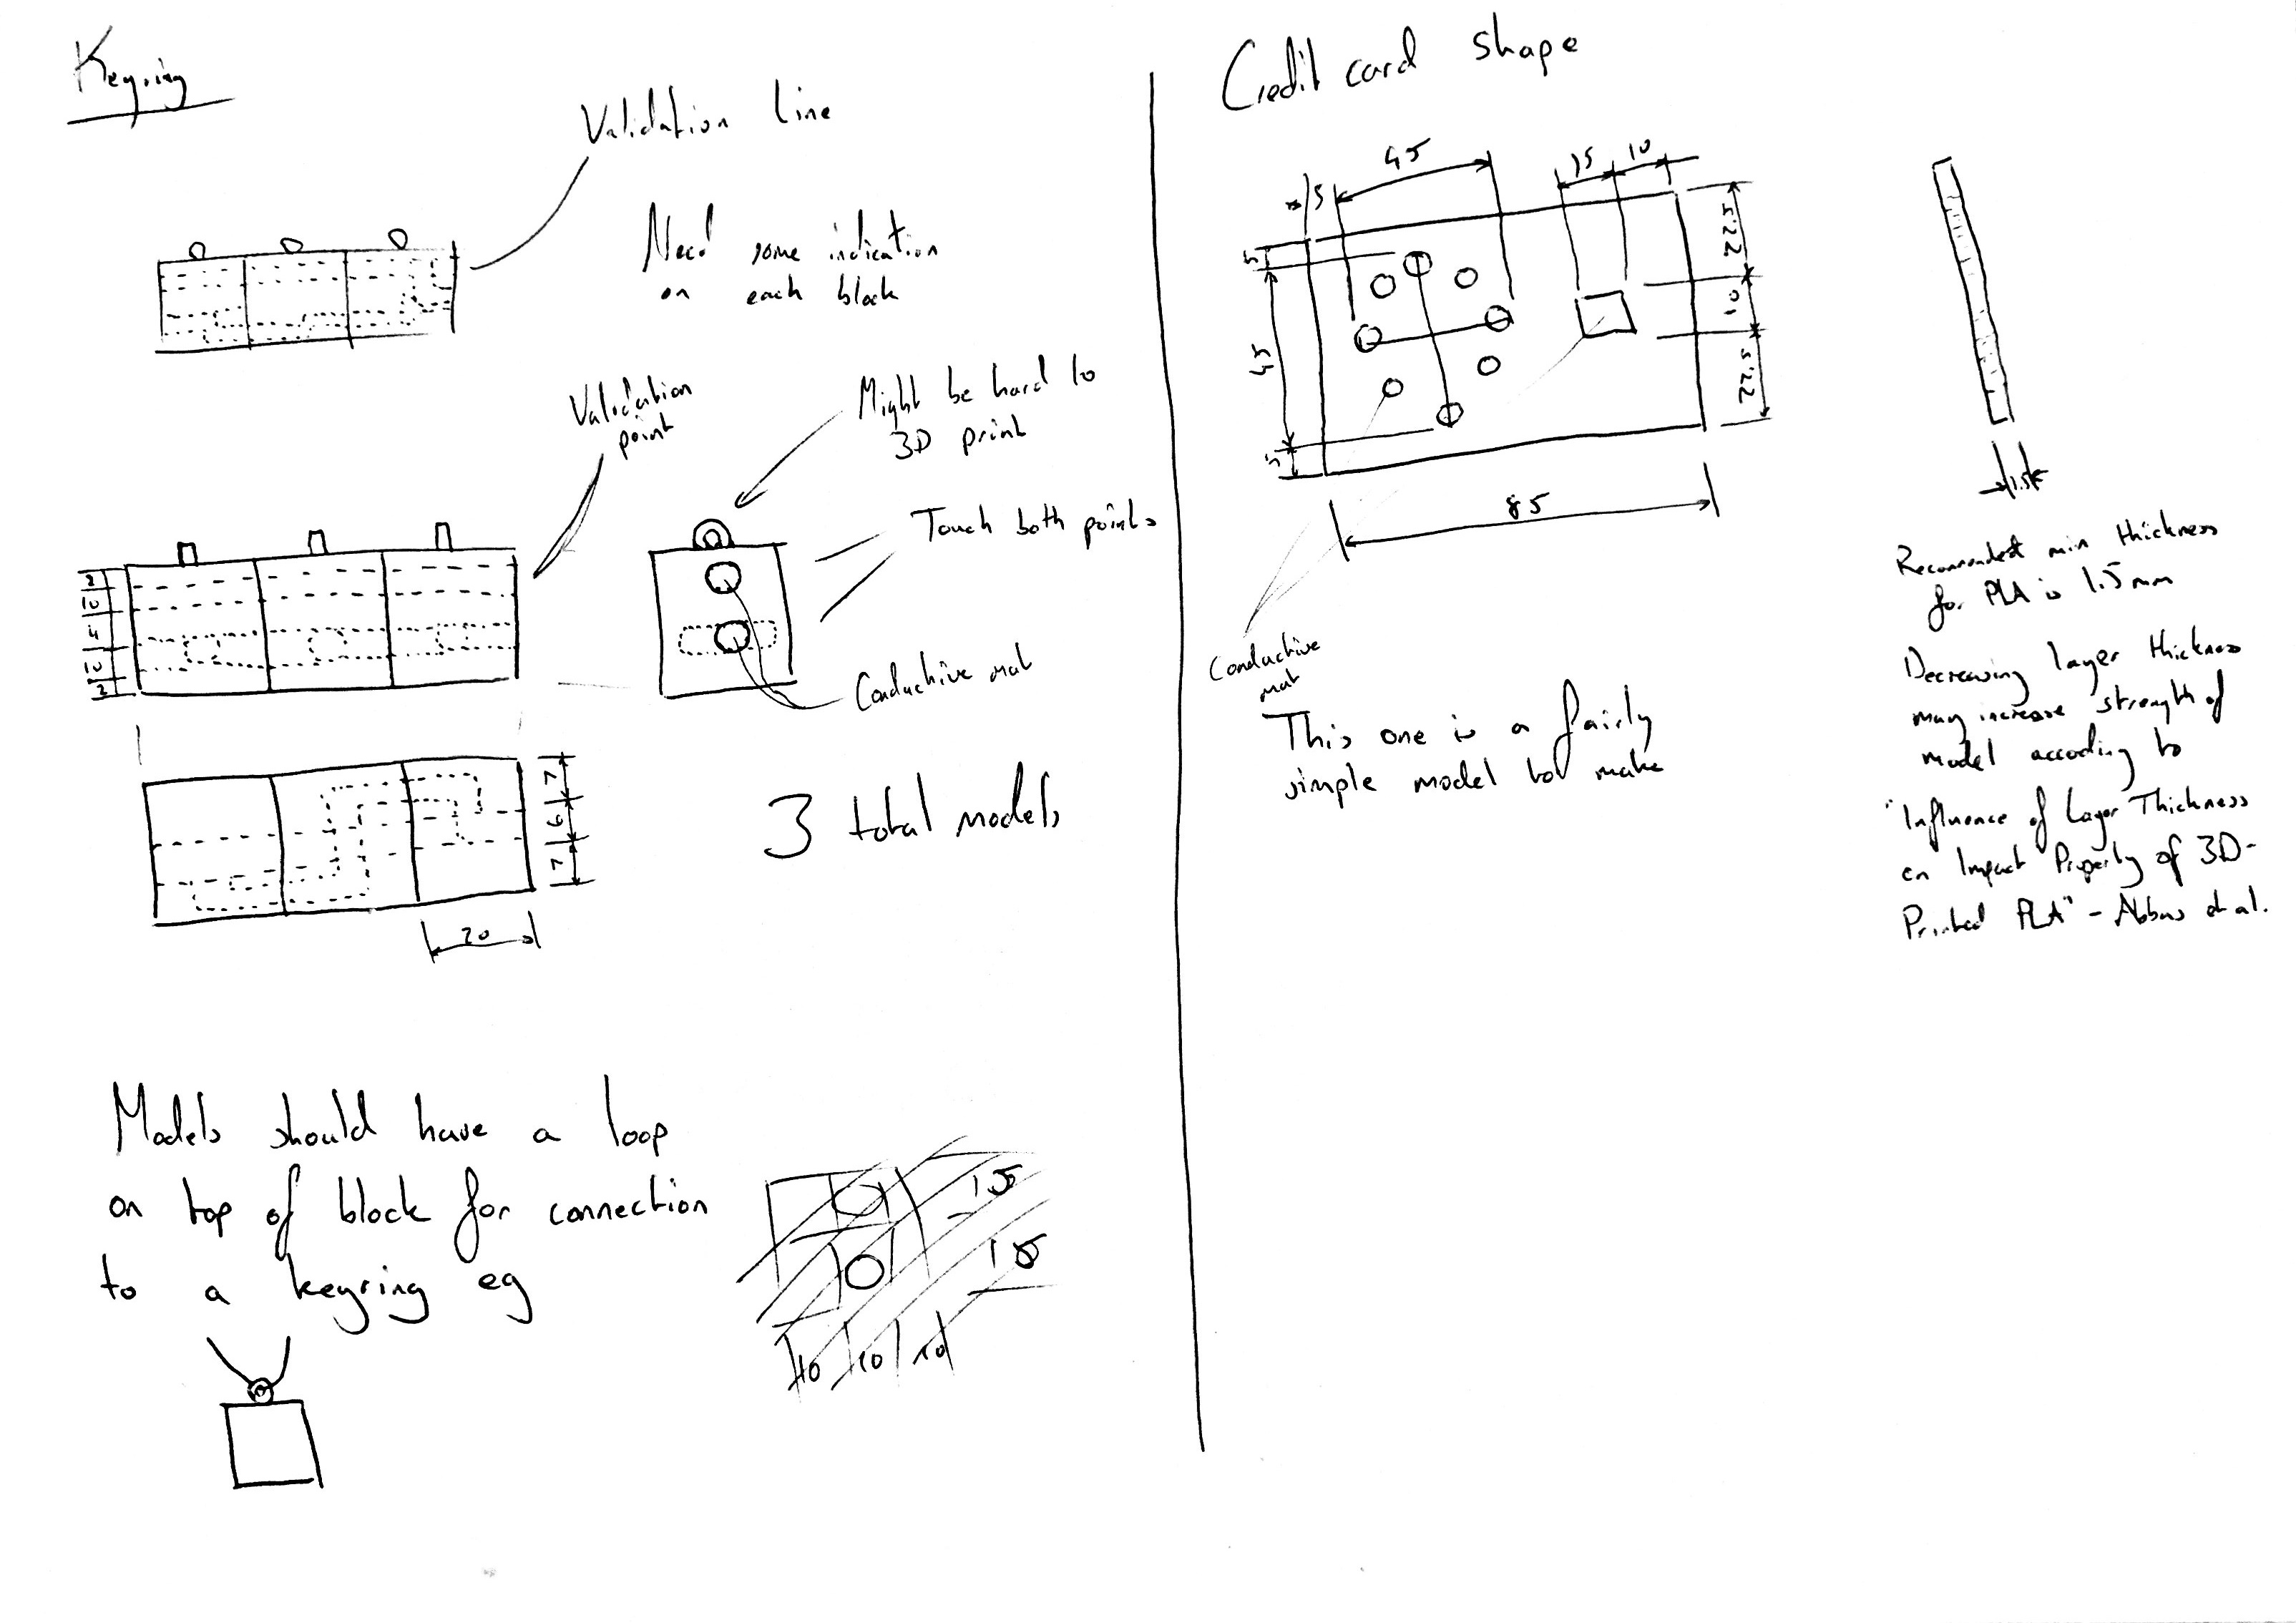 Keyring
Validation line
Need some indication
on each block
Validation
point
Might be hard to
3D print
Touch both points
Conductive mat
2
10
4
10
2
7
6
7
20
3 total models
Models should have a loop
on top of block for connection
to a keyring eg
15
15
10 10 10
Credit card shape
5
45
15
10
5
45
5
22.5
10
22.5
85
1.5
Conductive
mat
This one is a fairly
simple model to make
Recommended min thickness
for PLA is 1.5mm
Decreasing layer thickness
may increase strength of
model accoding to
"Influence of Layer Thickness
on Impact Property of 3D-
Printed PLA" - Abbas et al.